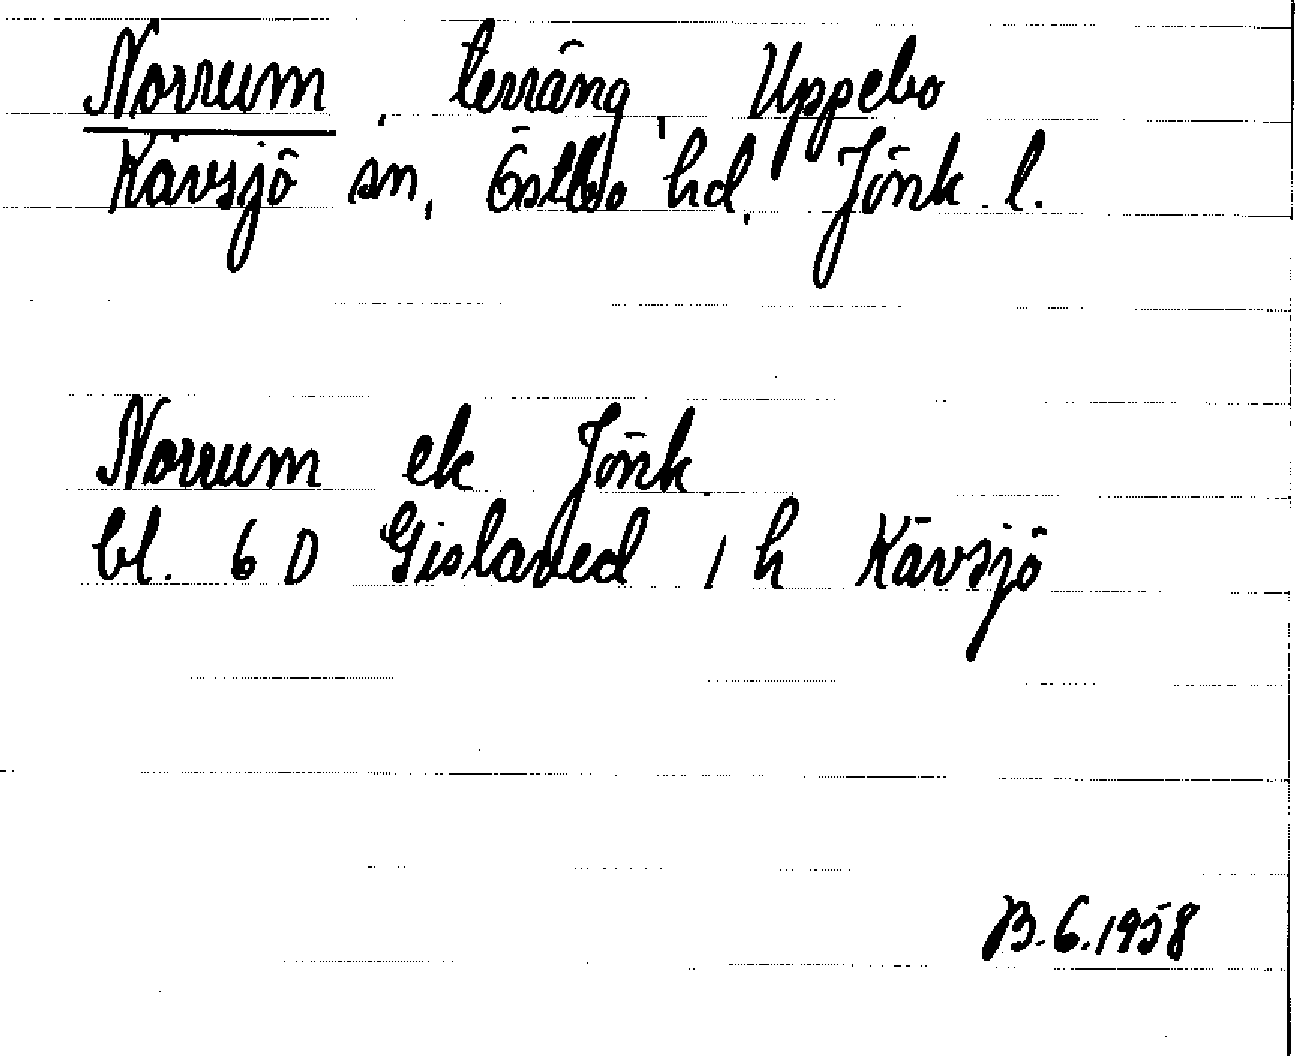 Norrum, terräng, Uppebo
Kävsjö sn, Östbo hd, Jönk. l.
Norrum ek Jönk.
bl. 6 D Gislaved 1 h Kävsjö
B.G. 1958